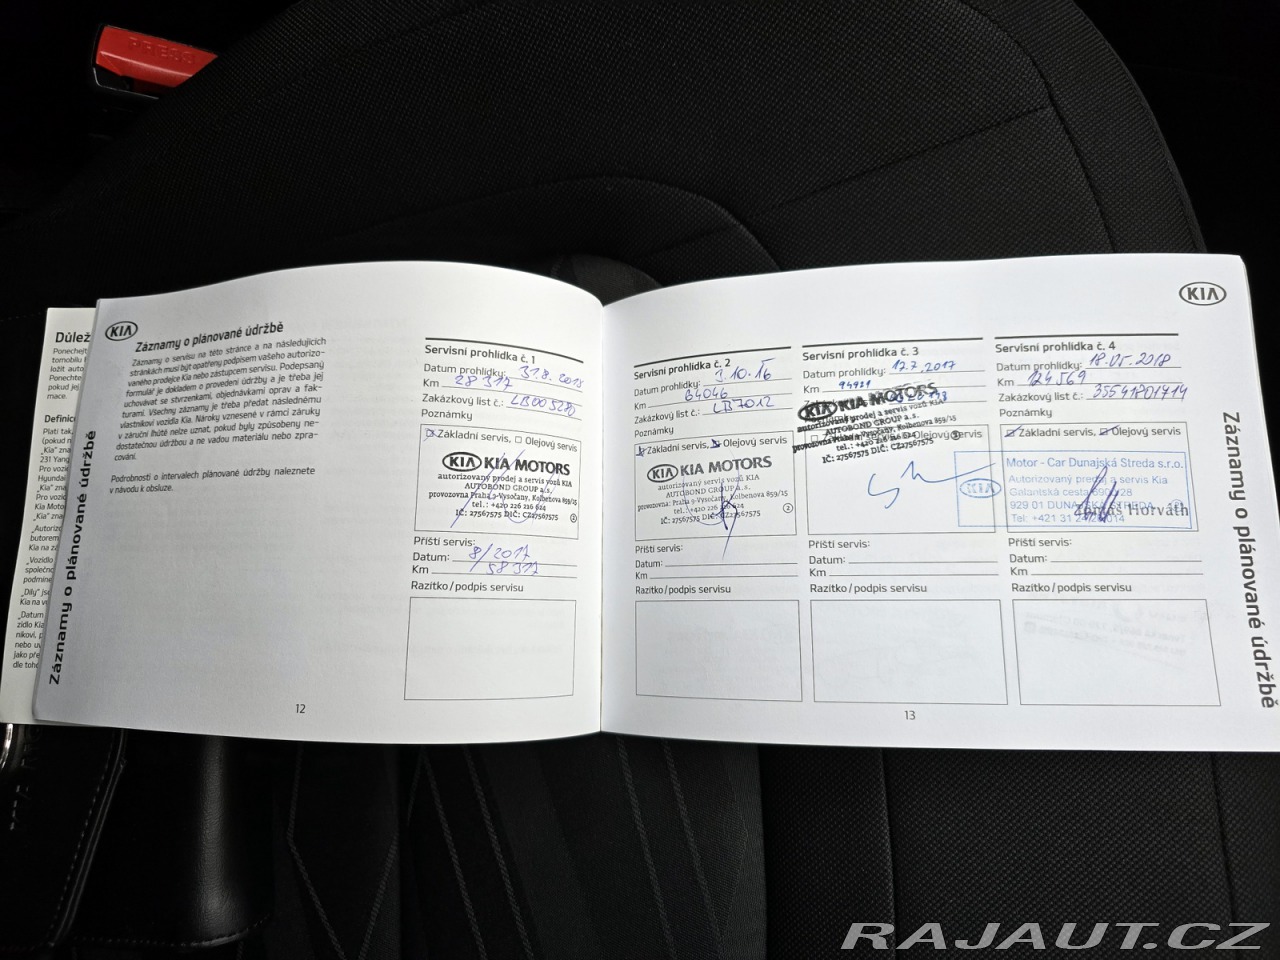 PRESS
KIA
Záznamy o plánované údržbě
Záznamy o servisu na této stránce a na následujících
stránkách musí být opatřeny podpisem vašeho autorizo-
vaného prodejce Kia nebo zástupcem servisu. Podepsaný
formulář je dokladem o provedení údržby a je třeba jej
uchovávat se stvrzenkami, objednávkami oprav a fak-
turami. Všechny záznamy je třeba předat následnému
vlastníkovi vozidla Kia. Nároky vznesené v rámci záruky
v záruční lhůtě nelze uznat, pokud byly způsobeny ne-
dostatečnou údržbou a ne vadou materiálu nebo zpra-
cování.
Podrobnosti o intervalech plánované údržby naleznete
v návodu k obsluze.
Záznamy o plánované údržbě
Servisní prohlídka č. 1
Datum prohlídky: 31.8.2015
Km 28 317
Zakázkový list č.: LB005280
Poznámky
Základní servis, Olejový servis
KIA KIA MOTORS
autorizovaný prodej a servis vozů KIA
AUTOBOND GROUP a.s.
provozovna Praha 9-Vysočany, Kolbenova 859/15
tel.: +420 226 216 624
IČ: 27567575 DIČ: CZ27567575
2
Příští servis:
Datum: 8/2017
Km 58 317
Razítko/podpis servisu
12
KIA
Servisní prohlídka č. 2
Datum prohlídky: 3.10.16
Km 64046
Zakázkový list č.: LB7012
Poznámky
Základní servis, Olejový servis
KIA KIA MOTORS
autorizovaný servis vozů KIA
AUTOBOND GROUP a.s.
provozovna: Praha 9-Vysočany, Kolbenova 859/15
tel.: +420 226 216 624
IČ: 27567575 DIČ: CZ27567575
2
Příští servis:
Datum:
Km
Razítko/podpis servisu
Servisní prohlídka č. 3
Datum prohlídky: 12.7.2017
Km 94921
KIA KIA MOTORS
autorizovaný prodej a servis vozů KIA
AUTOBOND GROUP a.s.
provozovna Praha 9-Vysočany, Kolbenova 859/15
tel.: +420 226 216 624
IČ: 27567575 DIČ: CZ27567575
Olejový servis
Příští servis:
Datum:
Km
Razítko/podpis servisu
Servisní prohlídka č. 4
Datum prohlídky: 18.05.2018
Km 124569
Zakázkový list č.: 35541801414
Poznámky
Základní servis, Olejový servis
KIA
Motor - Car Dunajská Streda s.r.o.
Autorizovaný predaj a servis Kia
Galantská cesta
929 01 DUNAJSKÁ STREDA
Tomáš Horváth
Příští servis:
Datum:
Km
Razítko/podpis servisu
13
Záznamy o plánované údržbě
RAJAUT.CZ